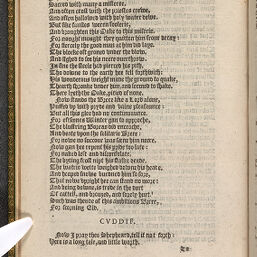 Sacred with many a mysteree,
And often crost with the priestes crewe,
And often halowed with holy water dewe.
But sike fancies weren foolerie,
And broughten this Oake to this miserie.
For nought mought they quitten him from decay:
For fiercely the good man at him did laye.
The blocke oft groned under the blow,
And sighed to see his neere overthrow.
In fine the steele had pierced his pith,
Tho downe to the earth he fell forthwith:
His wonderous weight made the ground to quake,
Th'earth shronke under him, and seemed to shake.
There lyeth the Oake, pitied of none.
Now stands the Brere like a Lord alone,
Puffed up with pryde and vaine pleasance:
But all this glee had no continuance.
For eftsones Winter gan to approche,
The blustring Boreas did encroche,
And beate upon the solitarie Brere:
For nowe no succour was seene him neere.
Now gan he repent his pride too late:
For naked left and disconsolate,
The byting frost nipt his stalke dead,
The watrie wette weighed downe his head,
And heaped snowe burdned him so sore,
That nowe upright he can stand no more:
And being downe, is trode in the durt
Of cattell, and brouzed, and sorely hurt.
Such was thende of this ambitious Brere,
For scorning Eld.
CVDDIE.
Now I pray thee shepheard, tel it not forth:
Here is a long tale, and little worth.